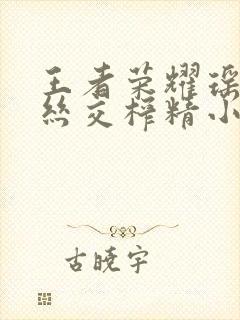 王者荣耀瑶
丝交榨精小
古晓宇